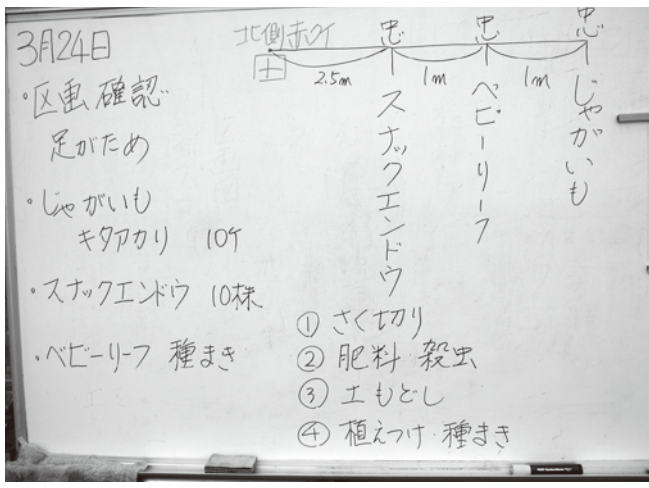 3月24日
・区画確認
足がため
・じゃがいも
キタアカリ 10ケ
・スナックエンドウ 10株
・ベビーリーフ 種まき
北側赤クイ
忠 忠 忠
2.5m 1m 1m
スナックエンドウ
ベビーリーフ
じゃがいも
① さく切り
② 肥料・殺虫
③ 土もどし
④ 植えつけ・種まき